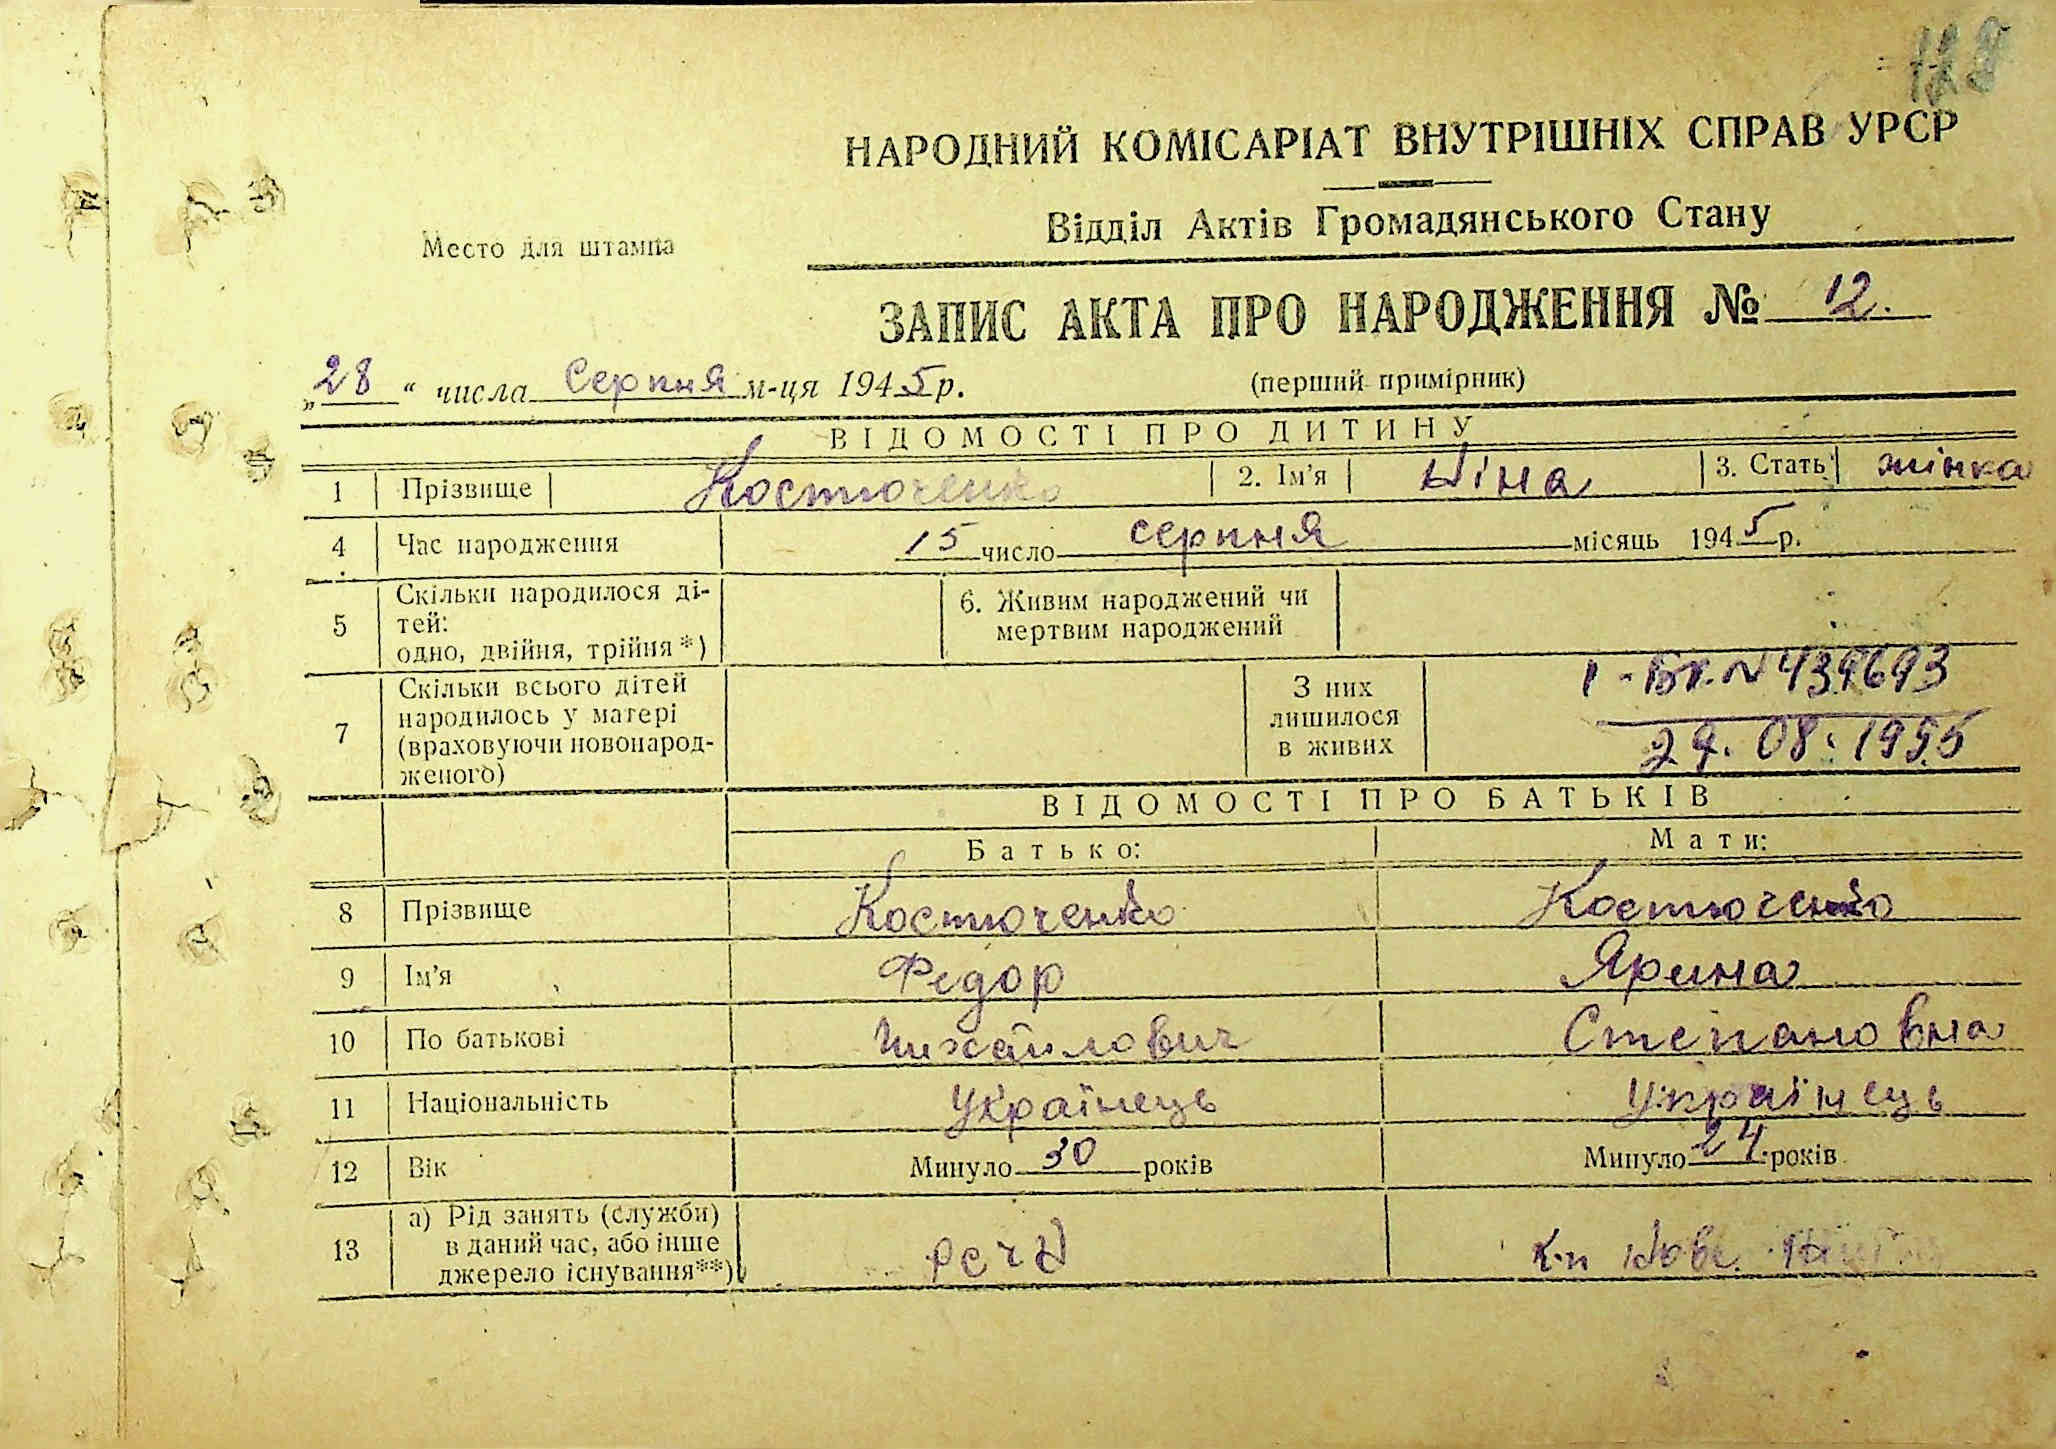 118
НАРОДНИЙ КОМІСАРІАТ ВНУТРІШНІХ СПРАВ УРСР
Відділ Актів Громадянського Стану
Место для штампа
ЗАПИС АКТА ПРО НАРОДЖЕННЯ № 12.
„28“ числа Серпня м-ця 1945 р.
(перший примірник)
ВІДОМОСТІ ПРО ДИТИНУ
1 Прізвище Костюченко 2. Ім'я Ніна 3. Стать жінка
4 Час народження 15 число серпня місяць 1945 р.
5 Скільки народилося ді-
тей:
одно, двійня, трійня*)
6. Живим народжений чи
мертвим народжений
7 Скільки всього дітей
народилось у матері
(враховуючи новонарод-
женого)
З них
лишилося
в живих
439693
29.08.1955
ВІДОМОСТІ ПРО БАТЬКІВ
Батько: Мати:
8 Прізвище Костюченко Костюченко
9 Ім'я Федор Ярина
10 По батькові Михайлович Степановна
11 Національність Українець Українець
12 Вік Минуло 30 років Минуло 24 років
13 а) Рід занять (служби)
в даний час, або інше
джерело існування**)